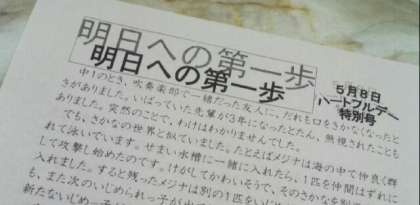 明日への第一歩
明日への第一歩
5月8日
ハートフルデー
特別号
中1のとき、吹奏楽部で一緒だった友人に、だれも口をきかなくなったと
きがありました。いばっていた先輩が3年になったとたん、無視されたことも
ありました。突然のことで、わけはわかりませんでした。
でも、さかなの世界と似ていました。たとえばメジナは海の中で仲良く群
れて泳いでいます。せまい水槽に一緒に入れたら、1匹を仲間はずれに
して攻撃し始めたのです。けがしてかわいそうで、そのさかなを別の
入れました。すると残ったメジナは別の1匹をいじめ
も、また次のいじめられっ子が出
新たないじめっ子が